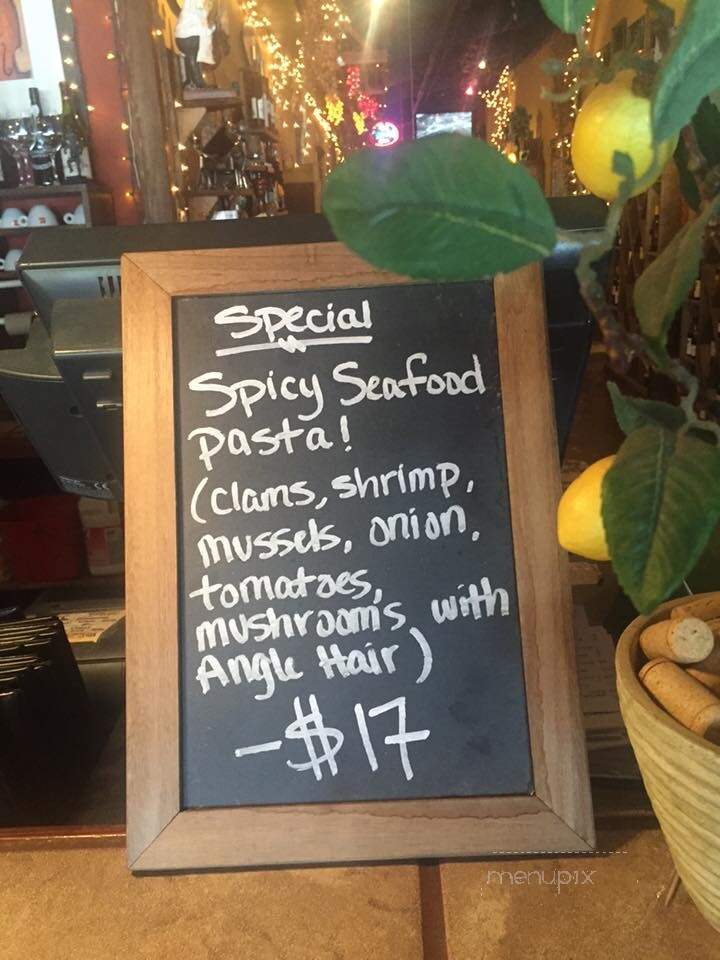 Special
Spicy Seafood
pasta!
(clams, shrimp,
mussels, onion,
tomatoes,
mushrooms with
Angle Hair)
-$17
menupix